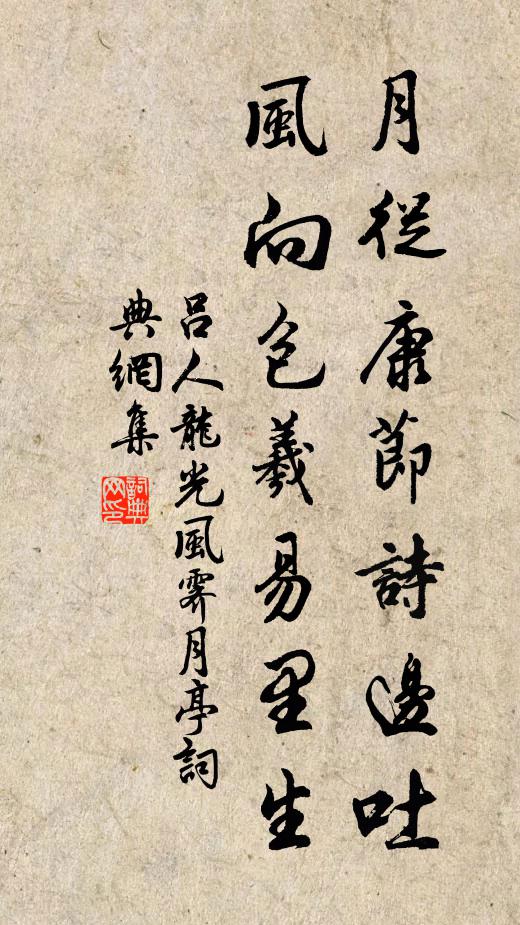 月從康節詩邊吐
風向包羲易里生
呂人龍光風霽月亭詞
典網集
詞典
网印